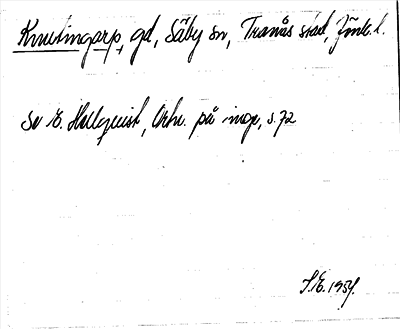 Knutingarp, gd, Säby sn, Tranås stad, Jönk. l.
Se E. Hellquist, Ortn. på inge, s. 72
S.E. 1954.